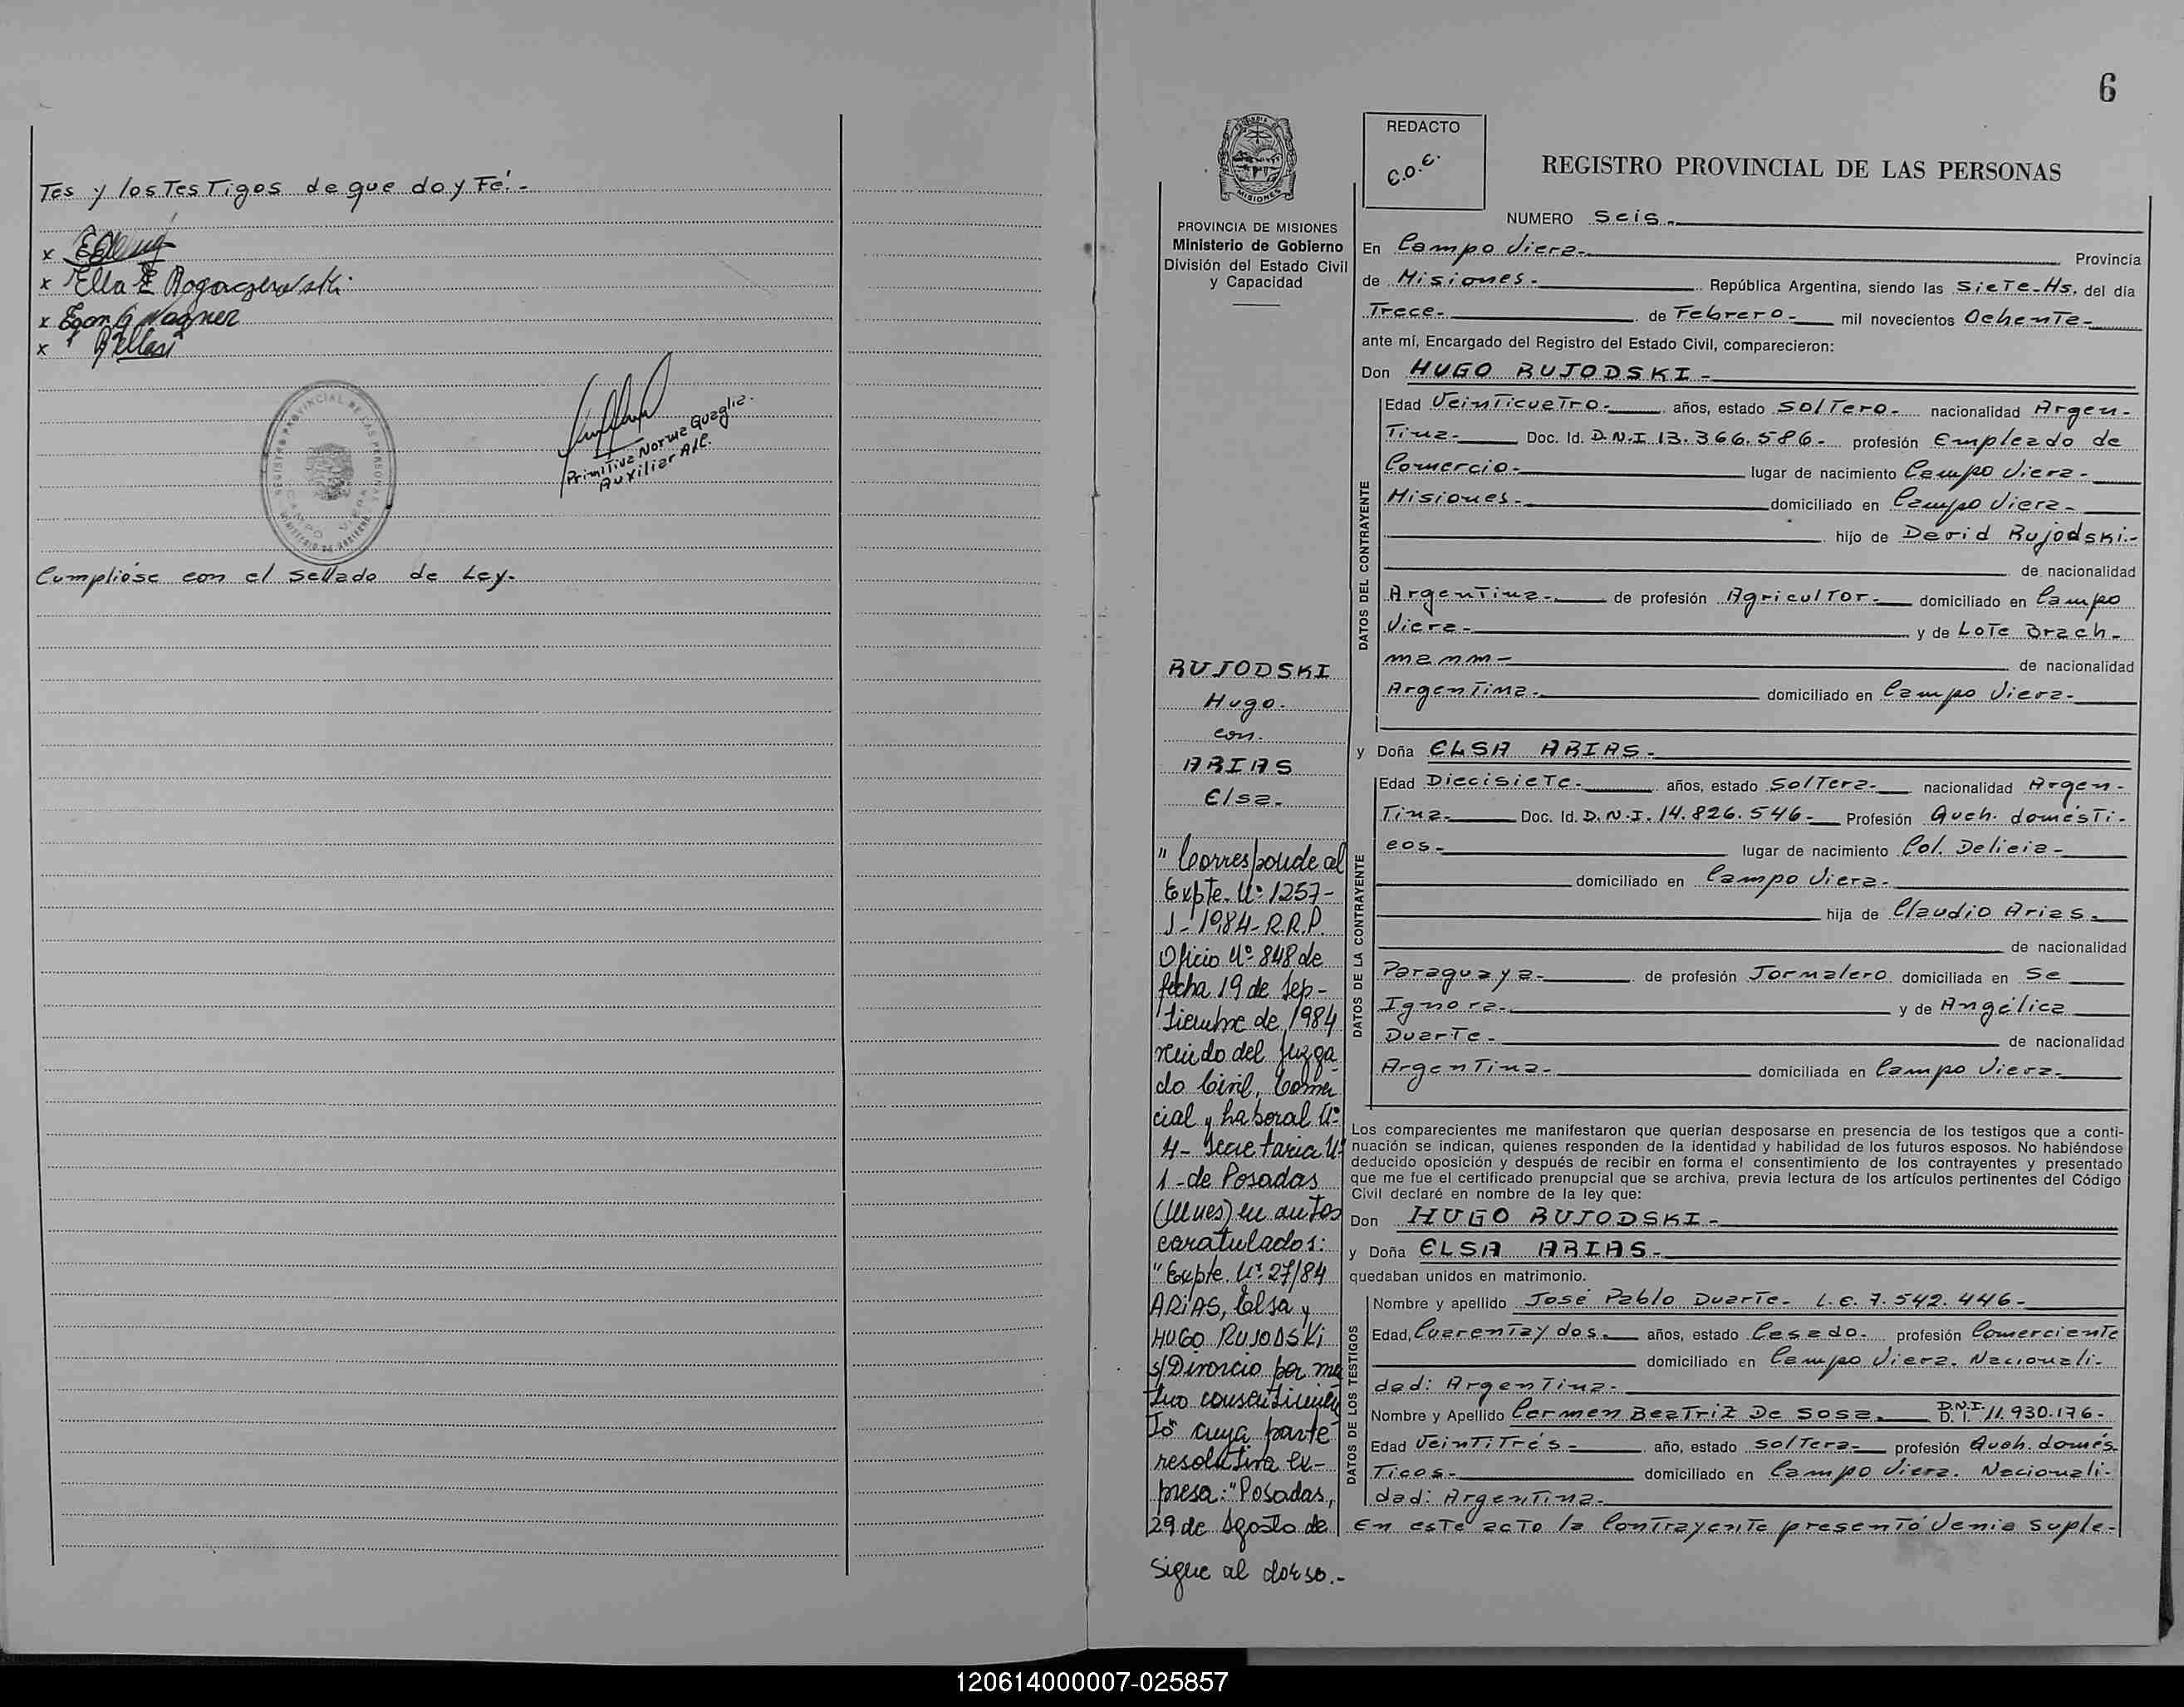 Tes y los Testigos de que doy Fé.-
x
x Ella E Rogaczewski
x Egon G Wagner
x
Primitiva Norma Quaglia.
Auxiliar A/C.
REGISTRO PROVINCIAL DE LAS PERSONAS
CAMPO VIERA
Cumplióse con el Sellado de Ley.-
6
PROVINCIA DE MISIONES
Ministerio de Gobierno
División del Estado Civil
y Capacidad
RUJODSKI
Hugo.
con.
ARIAS
Elsa.
"Corresponde al
Expte. Nº 1257-
J-1984-R.R.P.
Oficio Nº 848 de
fecha 19 de Sep-
tiembre de 1984
venido del Juzga
do Civil, Comer
cial y Laboral Nº
4- Secretaria Nº
1-de Posadas
(Mnes) en autos
caratulados:
"Expte. Nº 27/84
ARIAS, Elsa y
HUGO RUJODSKI
s/Divorcio por mu
tuo consentimien
to" cuya parte
resolutiva ex-
presa: "Posadas,
29 de Agosto de
Sigue al dorso.-
REDACTO
C.O.E.
REGISTRO PROVINCIAL DE LAS PERSONAS
NUMERO Seis.-
En Campo Viera- Provincia
de Misiones.- República Argentina, siendo las Siete-Hs. del día
Trece- de Febrero- mil novecientos Ochenta-
ante mí, Encargado del Registro del Estado Civil, comparecieron:
Don HUGO RUJODSKI-
DATOS DEL CONTRAYENTE
Edad Veinticuatro- años, estado Soltero- nacionalidad Argen-
tina- Doc. Id. D.N.I 13.366.586- profesión Empleado de
Comercio- lugar de nacimiento Campo Viera-
Misiones- domiciliado en Campo Viera-
hijo de David Rujodski.-
de nacionalidad
Argentina- de profesión Agricultor- domiciliado en Campo
Viera- y de Lote Brach-
mann- de nacionalidad
Argentina- domiciliado en Campo Viera-
y Doña ELSA ARIAS-
DATOS DE LA CONTRAYENTE
Edad Diecisiete- años, estado Soltera- nacionalidad Argen-
tina- Doc. Id. D.N.I. 14.826.546- Profesión Queh. domésti-
cos- lugar de nacimiento Col. Delicia-
domiciliado en Campo Viera-
hija de Claudio Arias-
de nacionalidad
Paraguaya- de profesión Jornalero domiciliada en Se
Ignora- y de Angélica
Duarte- de nacionalidad
Argentina- domiciliada en Campo Viera-
Los comparecientes me manifestaron que querían desposarse en presencia de los testigos que a conti-
nuación se indican, quienes responden de la identidad y habilidad de los futuros esposos. No habiéndose
deducido oposición y después de recibir en forma el consentimiento de los contrayentes y presentado
que me fue el certificado prenupcial que se archiva, previa lectura de los artículos pertinentes del Código
Civil declaré en nombre de la ley que:
Don HUGO RUJODSKI-
y Doña ELSA ARIAS-
quedaban unidos en matrimonio.
DATOS DE LOS TESTIGOS
Nombre y apellido José Pablo Duarte- L.E. 7.542.446-
Edad, Cuarenta y dos- años, estado Casado- profesión Comerciante
domiciliado en Campo Viera. Nacionali-
dad: Argentina-
Nombre y Apellido Carmen Beatriz De Sosa- D.N.I. D. I. 11.930.176-
Edad Veintitrés- año, estado Soltera- profesión Queh. domés-
ticos- domiciliado en Campo Viera. Nacionali-
dad: Argentina-
En este acto la Contrayente presentó Venia Suple-
120614000007-025857